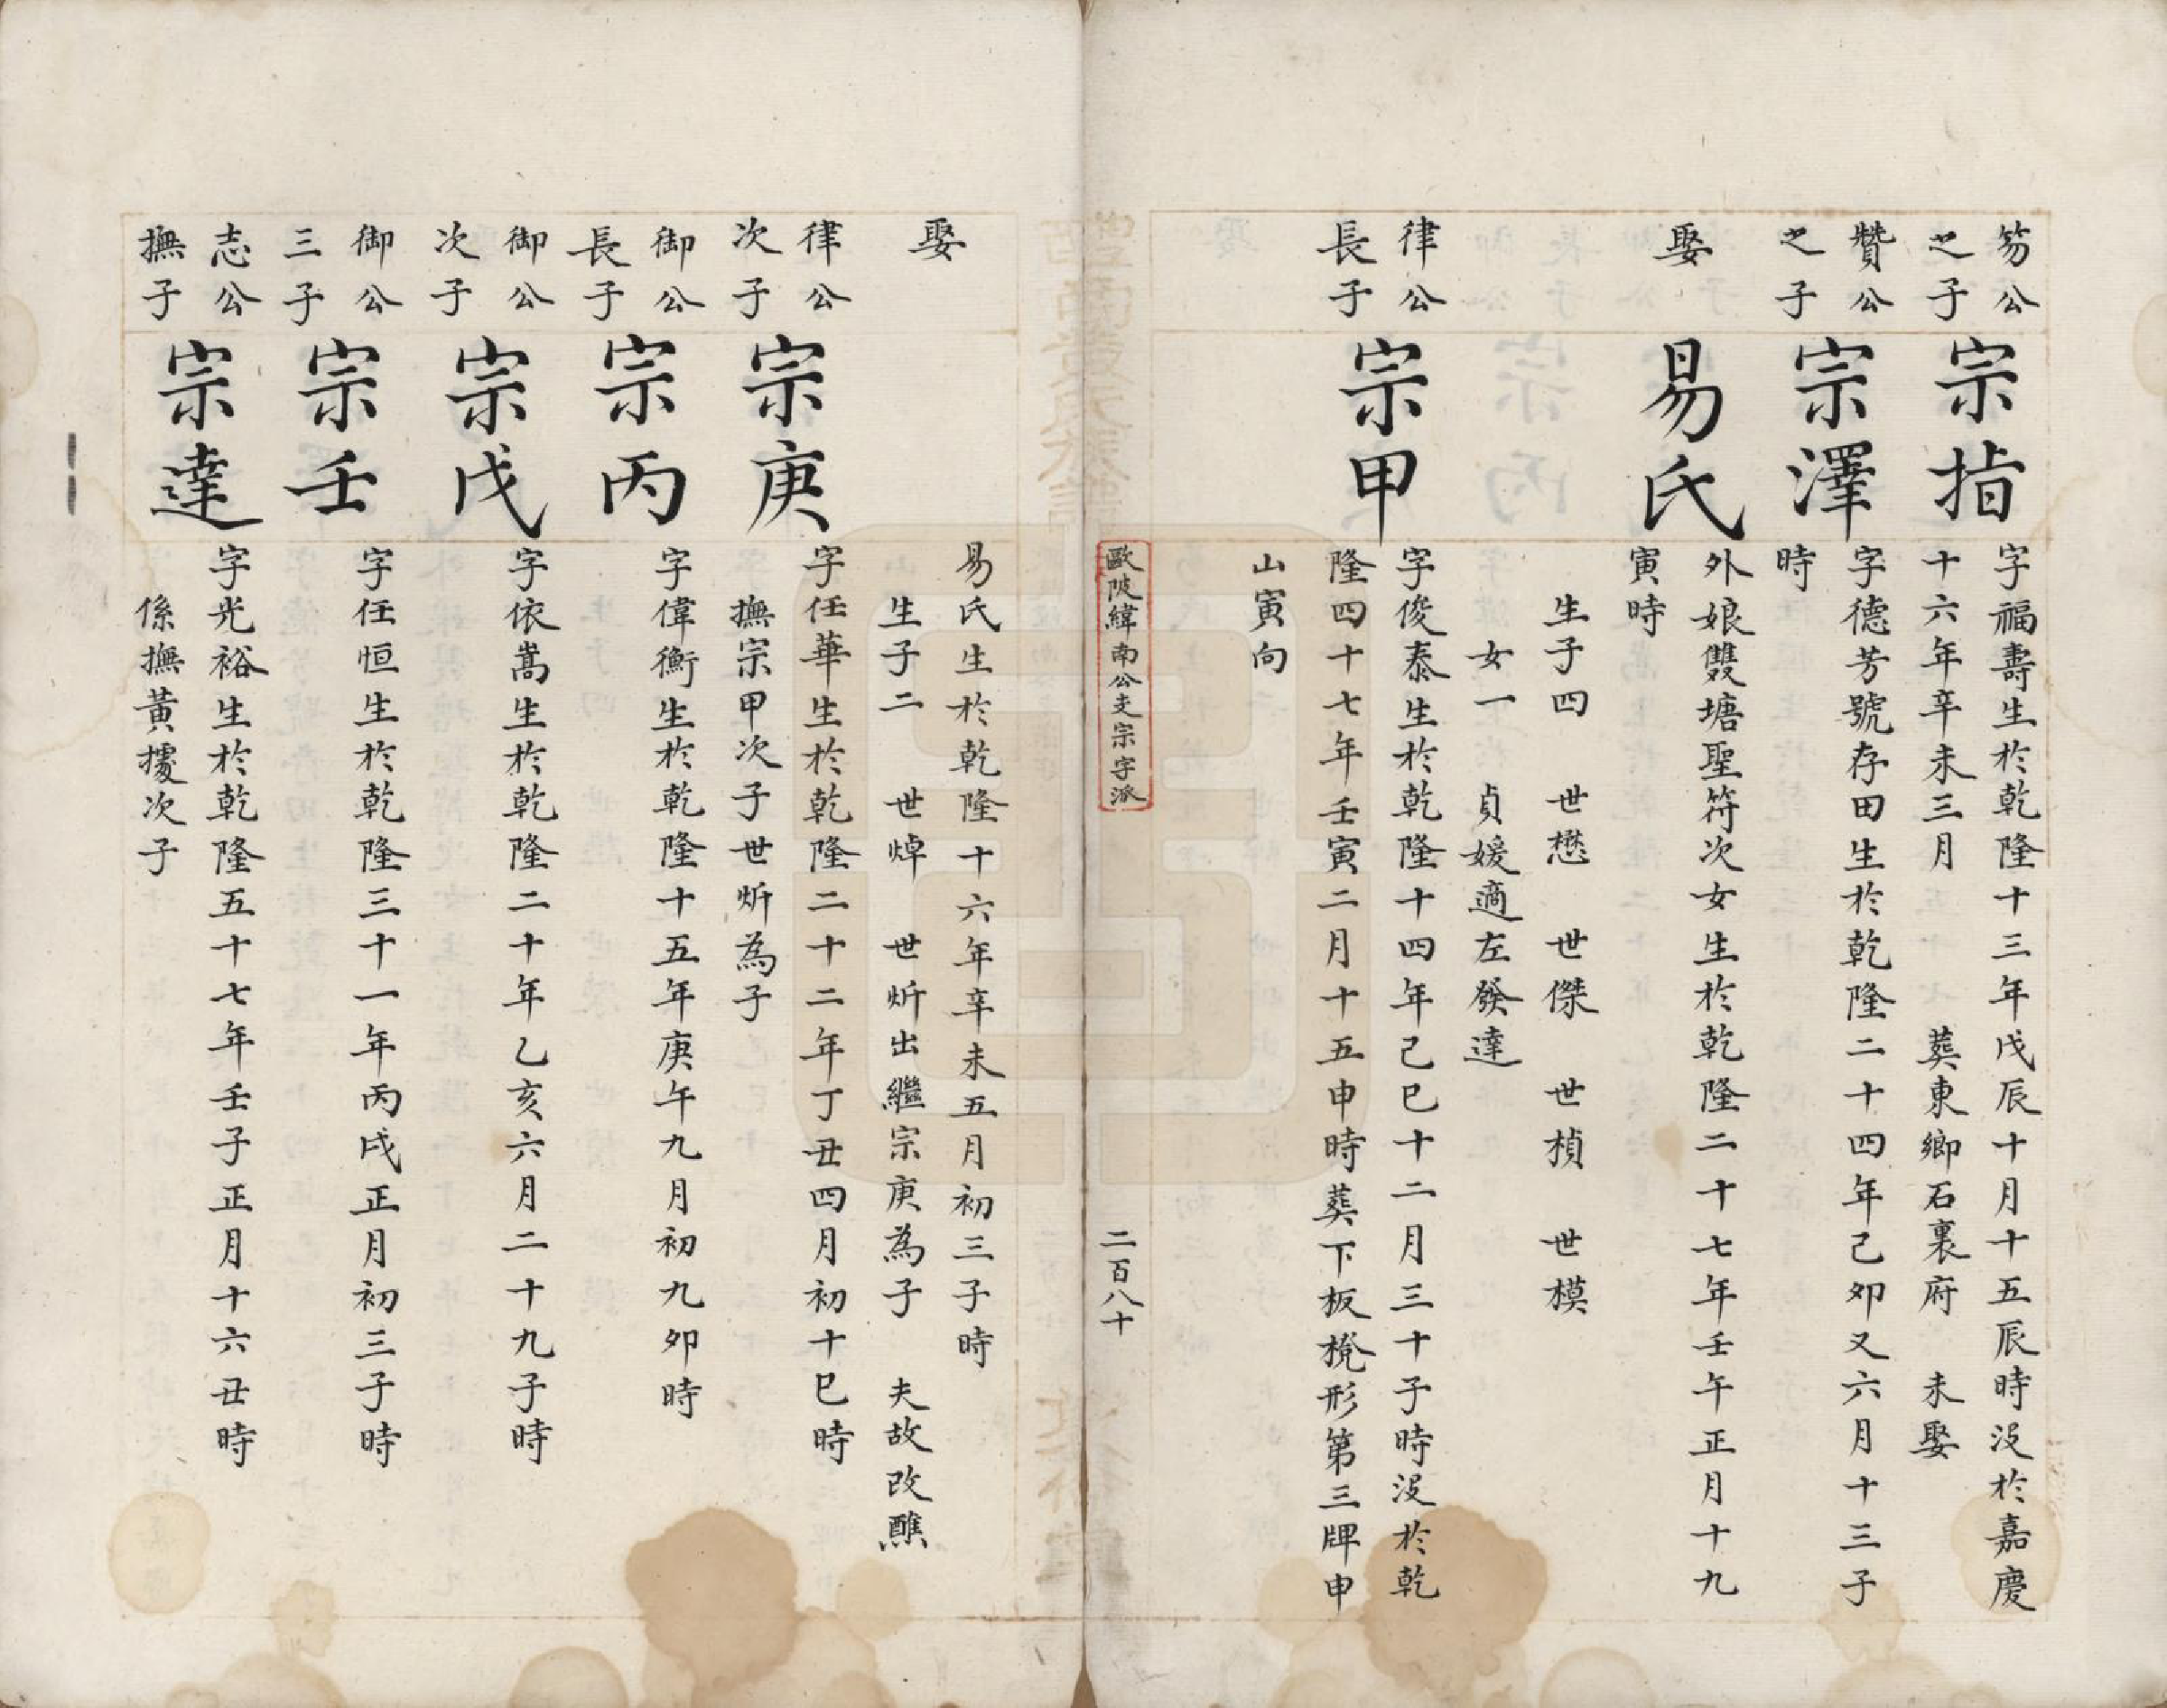 笏公
之子
宗指
字福壽生於乾隆十三年戊辰十月十五辰時沒於嘉慶
十六年辛未三月 葬東鄉石裏府 未娶
贊公
之子
宗澤
字德芳號存田生於乾隆二十四年己卯又六月十三子
時
娶
易氏
外娘雙塘聖符次女生於乾隆二十七年壬午正月十九
寅時
生子四 世懋 世傑 世楨 世模
女一 貞媛適左發達
律公
長子
宗甲
字俊泰生於乾隆十四年己巳十二月三十子時沒於乾
隆四十七年壬寅二月十五申時葬下板桄形第三牌申
山寅向
歐陂緯南公支宗字派
二百八十
娶
易氏生於乾隆十六年辛未五月初三子時
生子二 世焯 世炘出繼宗庚為子 夫故改醮
律公
次子
宗庚
字任華生於乾隆二十二年丁丑四月初十巳時
撫宗甲次子世炘為子
御公
長子
宗丙
字偉衡生於乾隆十五年庚午九月初九卯時
御公
次子
宗戊
字依嵩生於乾隆二十年乙亥六月二十九子時
御公
三子
宗壬
字任恒生於乾隆三十一年丙戌正月初三子時
志公
撫子
宗達
字光裕生於乾隆五十七年壬子正月十六丑時
係撫黃擾次子